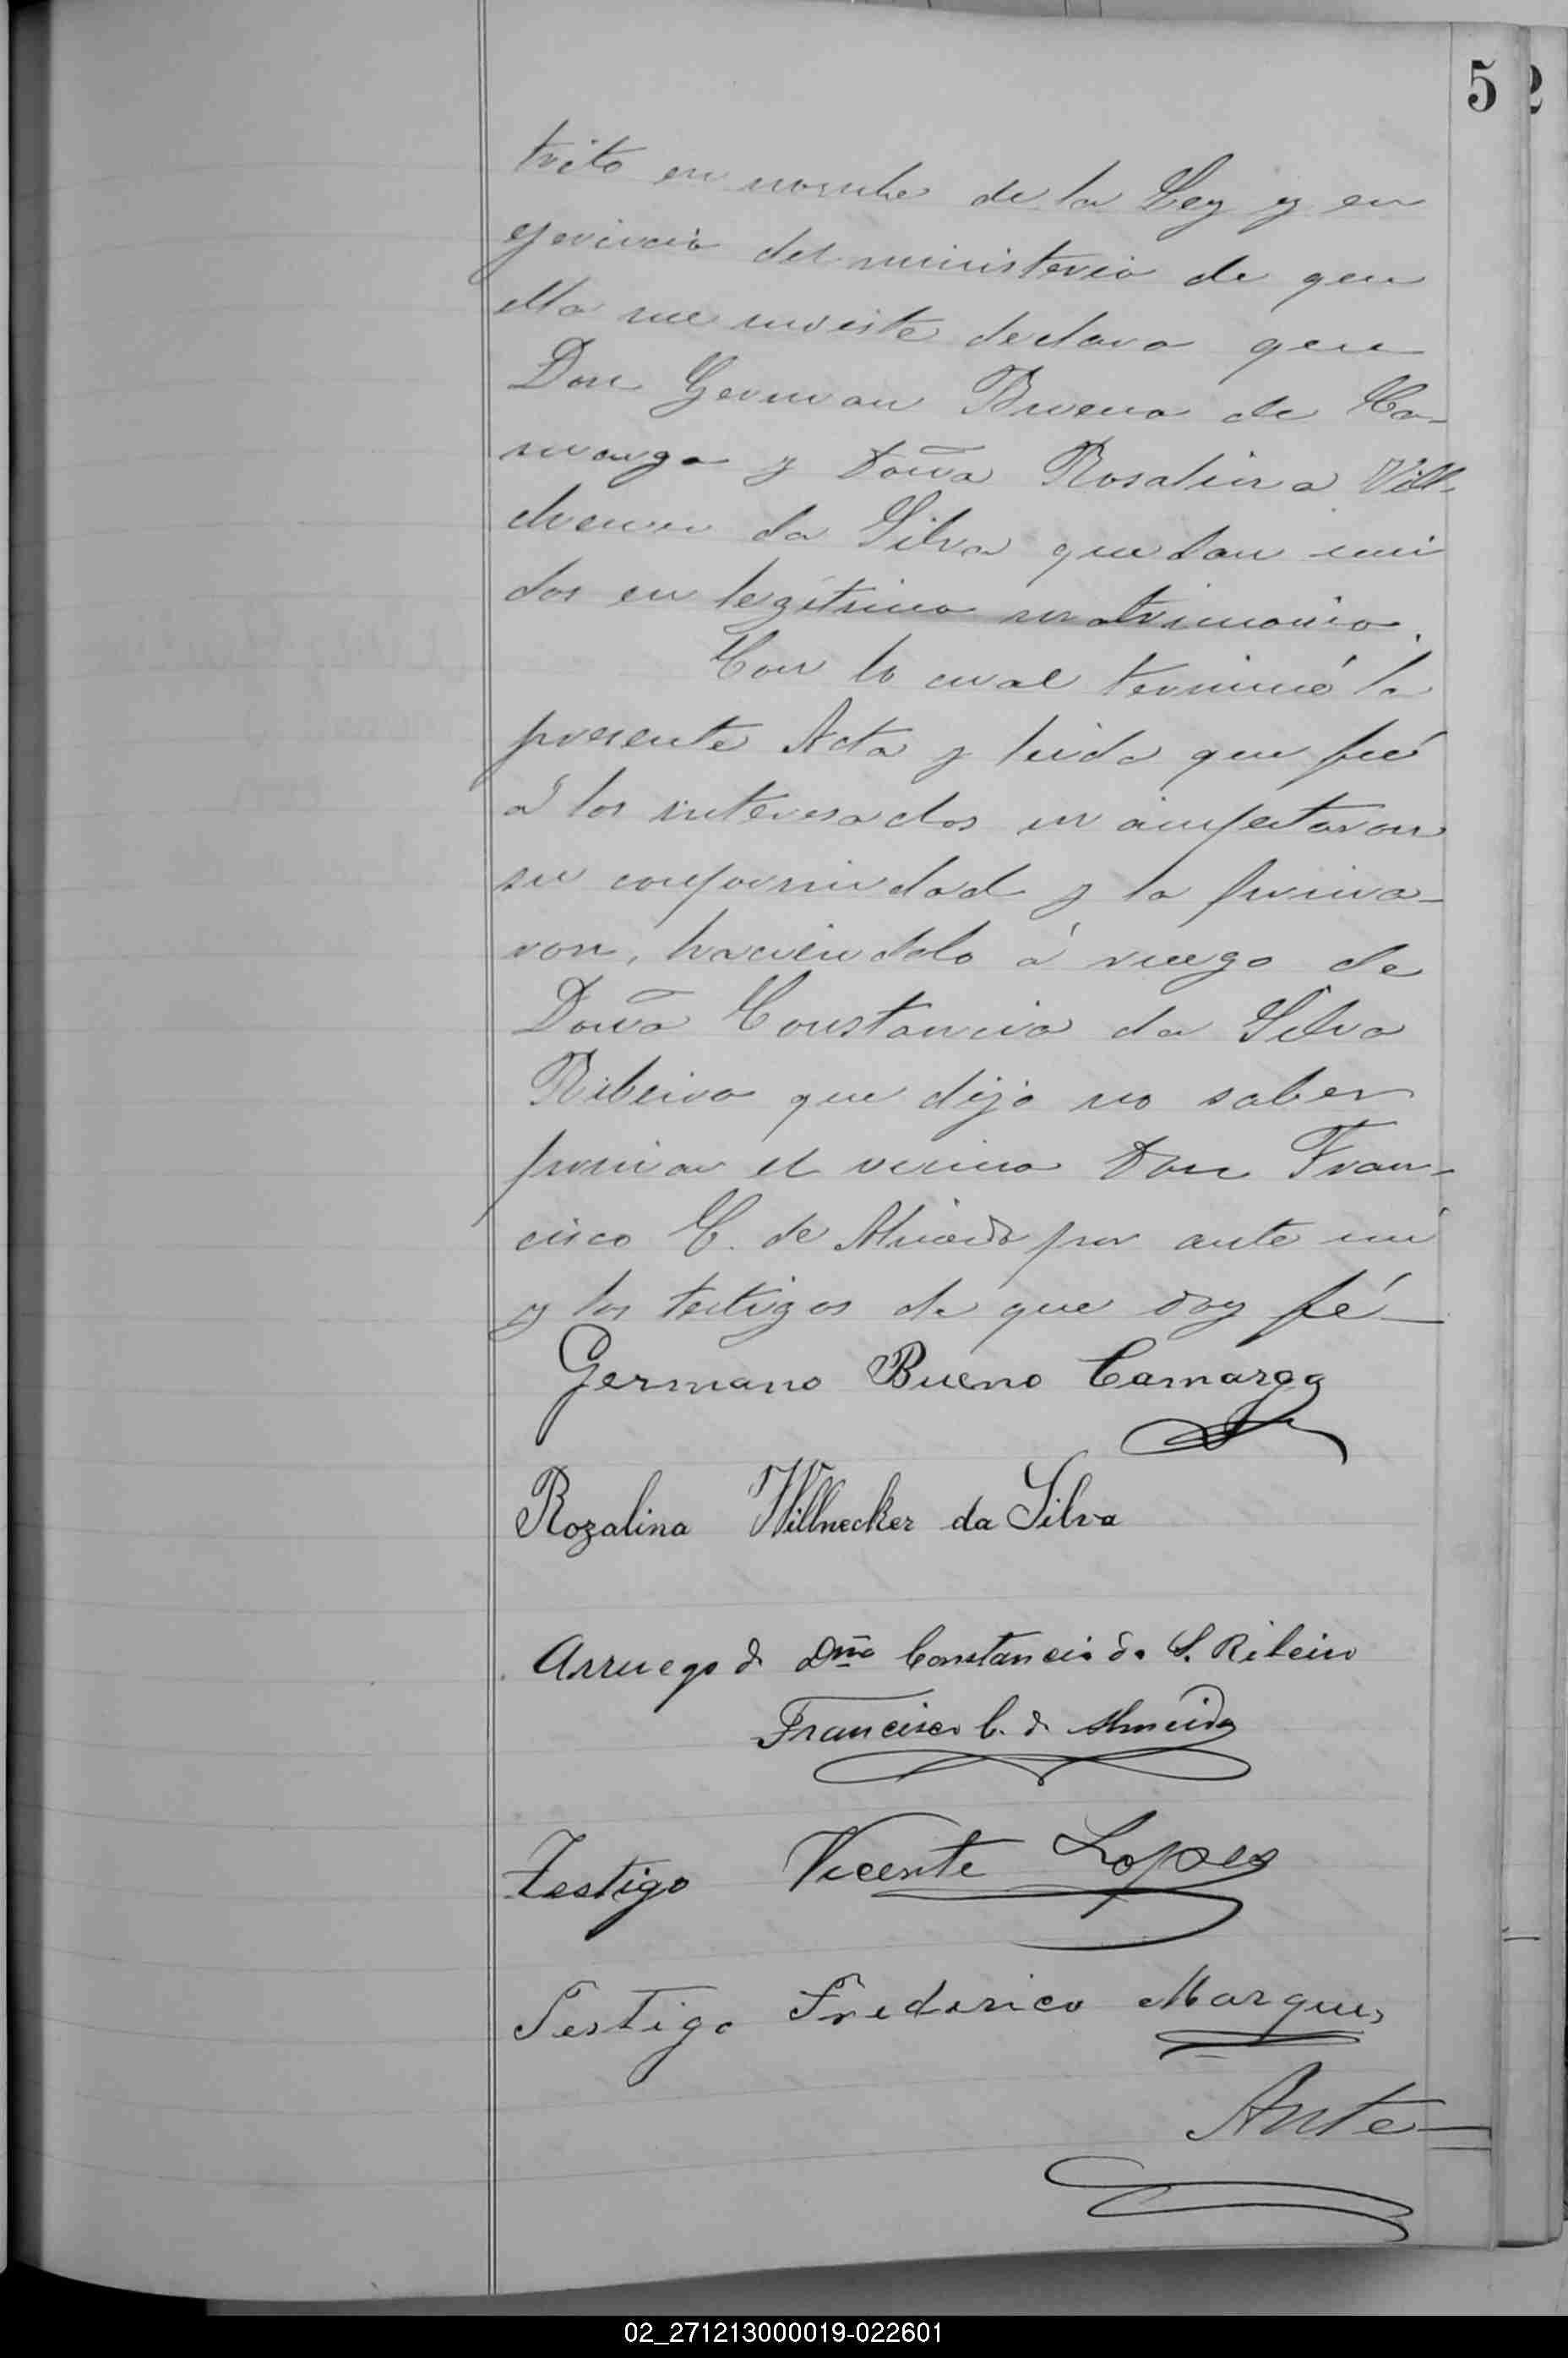 5 2
trito en nombre de la Ley y en
ejercicio del ministerio de que
ella me inviste declaro que
Don German Bueno de Ca-
margo y Doña Rosalina Vill-
da Silva quedan uni
dos en legítimo matrimonio.
Con lo cual terminé la
presente Acta y leida que fué
á los interesados manifestaron
su conformidad y la firma-
ron, haciendolo á ruego de
Doña Constancia da Silva
Ribeiro que dijo no saber
firmar el vecino Don Fran-
cisco C. de Almeida por ante mi
y los testigos de que doy fé
Germano Bueno Camargo
Rozalina Willnecker da Silva
Arruego de Dña Constancia da S. Ribeiro
Francisco C. de Almeida
Testigo Vicente Lopes
Testigo Frederico Marques
Ante
02_271213000019-022601